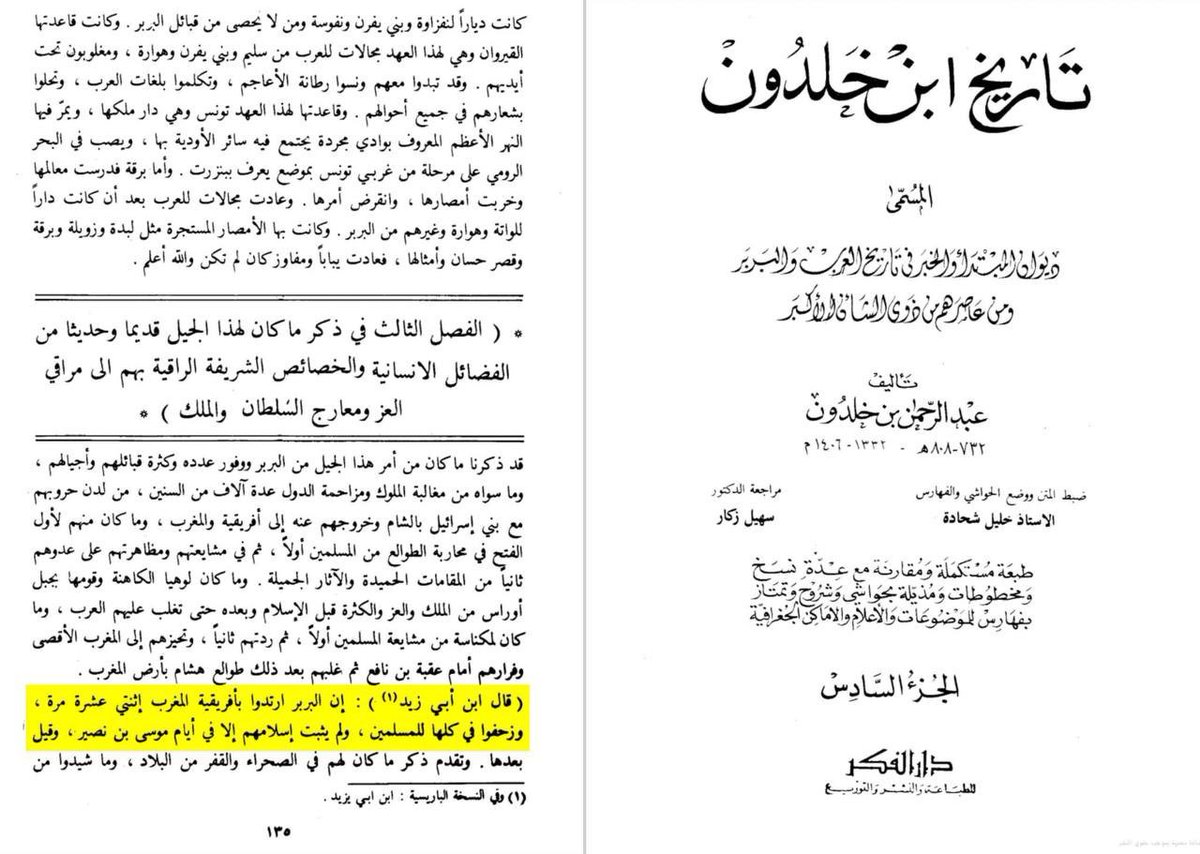 تاريخ ابن خلدون
المسمى
ديوان المبتدأ والخبر في تاريخ العرب والبربر
ومن عاصرهم من ذوي الشأن الأكبر
تأليف
عبد الرحمن بن خلدون
٧٣٢-٨٠٨هـ - ١٣٣٢-١٤٠٦م
ضبط المتن ووضع الحواشي والفهارس
الاستاذ خليل شحادة
مراجعة الدكتور
سهيل زكار
طبعة مستكملة ومقارنة مع عدة نسخ
ومخطوطات ومذيلة بحواشي وشروح وتمتاز
بفهارس للموضوعات والأعلام والأماكن الجغرافية
الجزء السادس
دار الفكر
للطباعة والنشر والتوزيع
كانت دياراً لنفزاوة وبني يفرن ونفوسة ومن لا يحصى من قبائل البربر . وكانت قاعدتها
القيروان وهي لهذا العهد مجالات للعرب من سليم وبني يفرن وهوارة ، ومغلوبون تحت
أيديهم . وقد تبدوا معهم ونسوا رطانة الأعاجم ، وتكلموا بلغات العرب ، وتحلوا
بشعارهم في جميع أحوالهم . وقاعدتها لهذا العهد تونس وهي دار ملكها ، ويمرّ فيها
النهر الأعظم المعروف بوادي مجردة يجتمع فيه سائر الأودية بها ، ويصب في البحر
الرومي على مرحلة من غربي تونس بموضع يعرف ببنزرت . وأما برقة فدرست معالمها
وخربت أمصارها ، وانقرض أمرها . وعادت مجالات للعرب بعد أن كانت داراً
للواتة وهوارة وغيرهم من البربر . وكانت بها الأمصار المستجرة مثل لبدة وزويلة وبرقة
وقصر حسان وأمثالها ، فعادت يباباً ومفاوز كان لم تكن والله أعلم .
* ( الفصل الثالث في ذكر ما كان لهذا الجيل قديما وحديثا من
الفضائل الانسانية والخصائص الشريفة الراقية بهم الى مراقي
العز ومعارج السُلطان والملك ) *
قد ذكرنا ما كان من أمر هذا الجيل من البربر ووفور عدده وكثرة قبائلهم وأجيالهم ،
وما سواه من مغالبة الملوك ومزاحمة الدول عدة آلاف من السنين ، من لدن حروبهم
مع بني إسرائيل بالشام وخروجهم عنه إلى أفريقية والمغرب ، وما كان منهم لأول
الفتح في محاربة الطوالع من المسلمين أولاً ، ثم في مشايعتهم ومظاهرتهم على عدوهم
ثانياً من المقامات الحميدة والآثار الجميلة . وما كان لوهيا الكاهنة وقومها بجبل
أوراس من الملك والعز والكثرة قبل الإسلام وبعده حتى تغلب عليهم العرب ، وما
كان لمكناسة من مشايعة المسلمين أولاً ، ثم ردتهم ثانياً ، وتحيزهم إلى المغرب الأقصى
وفرارهم أمام عقبة بن نافع ثم غلبهم بعد ذلك طوالع هشام بأرض المغرب .
( قال ابن أبي زيد(١) ) : إن البربر ارتدوا بأفريقية المغرب إثنتي عشرة مرة ،
وزحفوا في كلها للمسلمين ، ولم يثبت إسلامهم إلا في أيام موسى بن نصير ، وقيل
بعدها . وتقدم ذكر ما كان لهم في الصحراء والقفر من البلاد ، وما شيدوا من
(١) وفي النسخة الباريسية : ابن ابي يزيد .
١٣٥